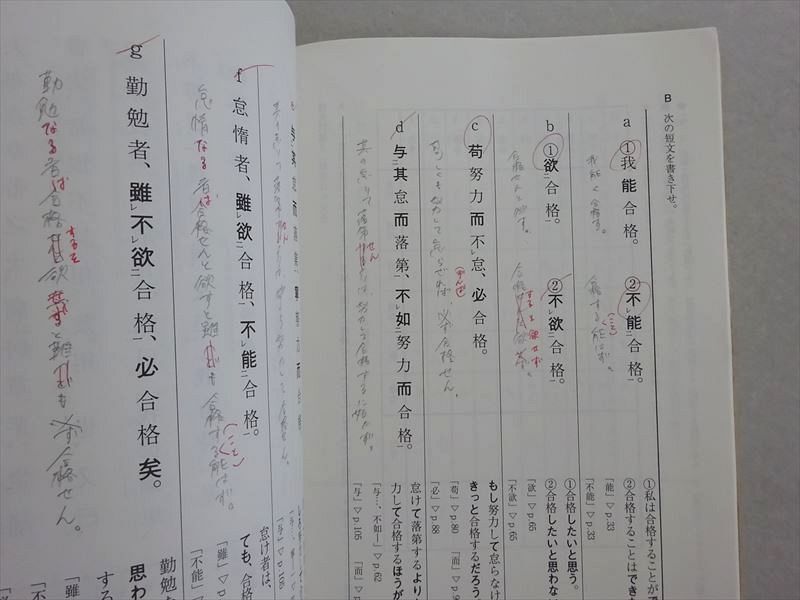 B 次の短文を書き下せ。
a ①我能合格。 ②不レ能二合格一。
我能く合格す。 合格する(こと)能はず。
①私は合格することがで
②合格することはでき
「能」▽p33
「不能」▽p33
b ①欲二合格一。 ②不レ欲二合格一。
合格せんと欲す。
①合格したいと思う。
②合格したいと思わな
「欲」▽p65
「不欲」▽p65
c 苟努力而不レ怠、必合格。
苟しくも努力して怠らざれば(ずんば)必ず合格せん。
もし努力して怠らなけ
きっと合格するだろう
「苟」▽p80 「而」▽p
「必」▽p88
d 与二其怠而落第一、不レ如二努力而合格一。
其の怠りて落第せんよりは、努力して合格するに如かず。
怠けて落第するより
力して合格するほうが
「与…、不如―」▽p62
「与」▽p105
f 怠惰者、雖レ欲二合格一、不レ能二合格一。
怠惰なる者は合格せんと欲すと雖も合格する(こと)能はず。
怠け者は、
ても、合格
「雖」▽p
「不能」▽
g 勤勉者、雖レ不レ欲二合格一、必合格矣。
勤勉なる者は合格するを欲せずと雖も必ず合格せん。
勤勉な
思わ
する
「雖
「不